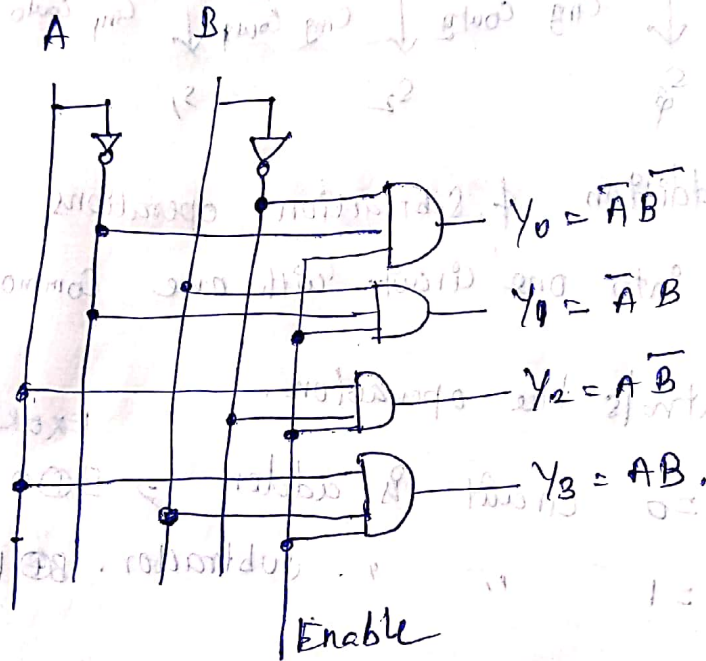 A B
Y0 = A̅ B̅
Y1 = A̅ B
Y2 = A B̅
Y3 = AB.
Enable